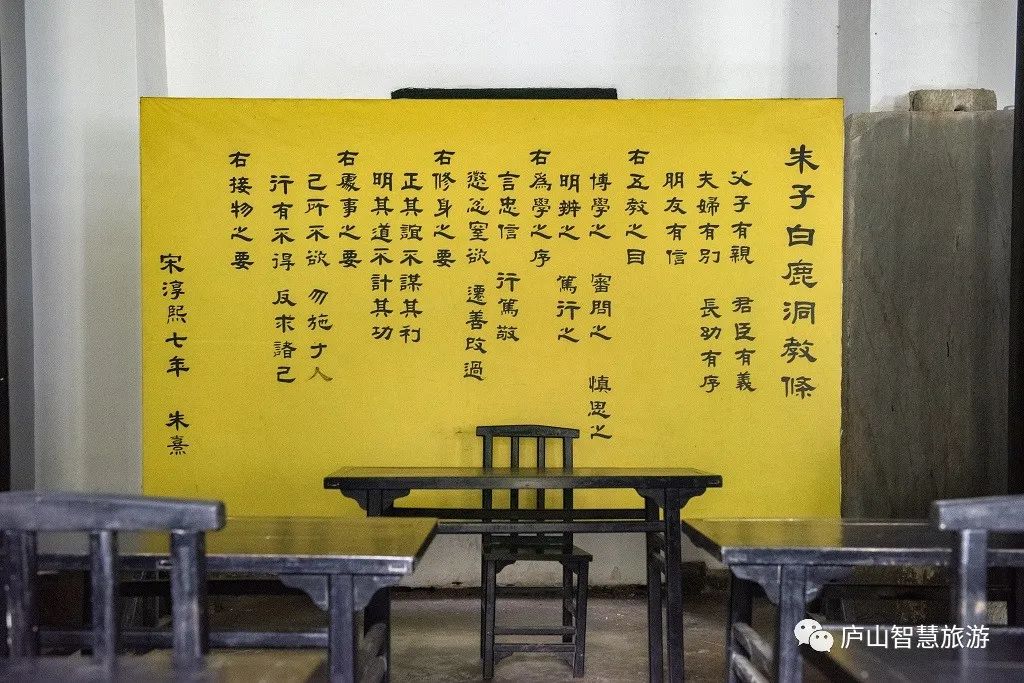 朱子白鹿洞教條
父子有親 君臣有義
夫婦有別 長幼有序
朋友有信
右五教之目
博學之 審問之 慎思之
明辨之 篤行之
右爲學之序
言忠信 行篤敬
懲忿窒欲 遷善改過
右修身之要
正其誼不謀其利
明其道不計其功
右處事之要
己所不欲 勿施于人
行有不得 反求諸己
右接物之要
宋淳熙七年 朱熹
庐山智慧旅游